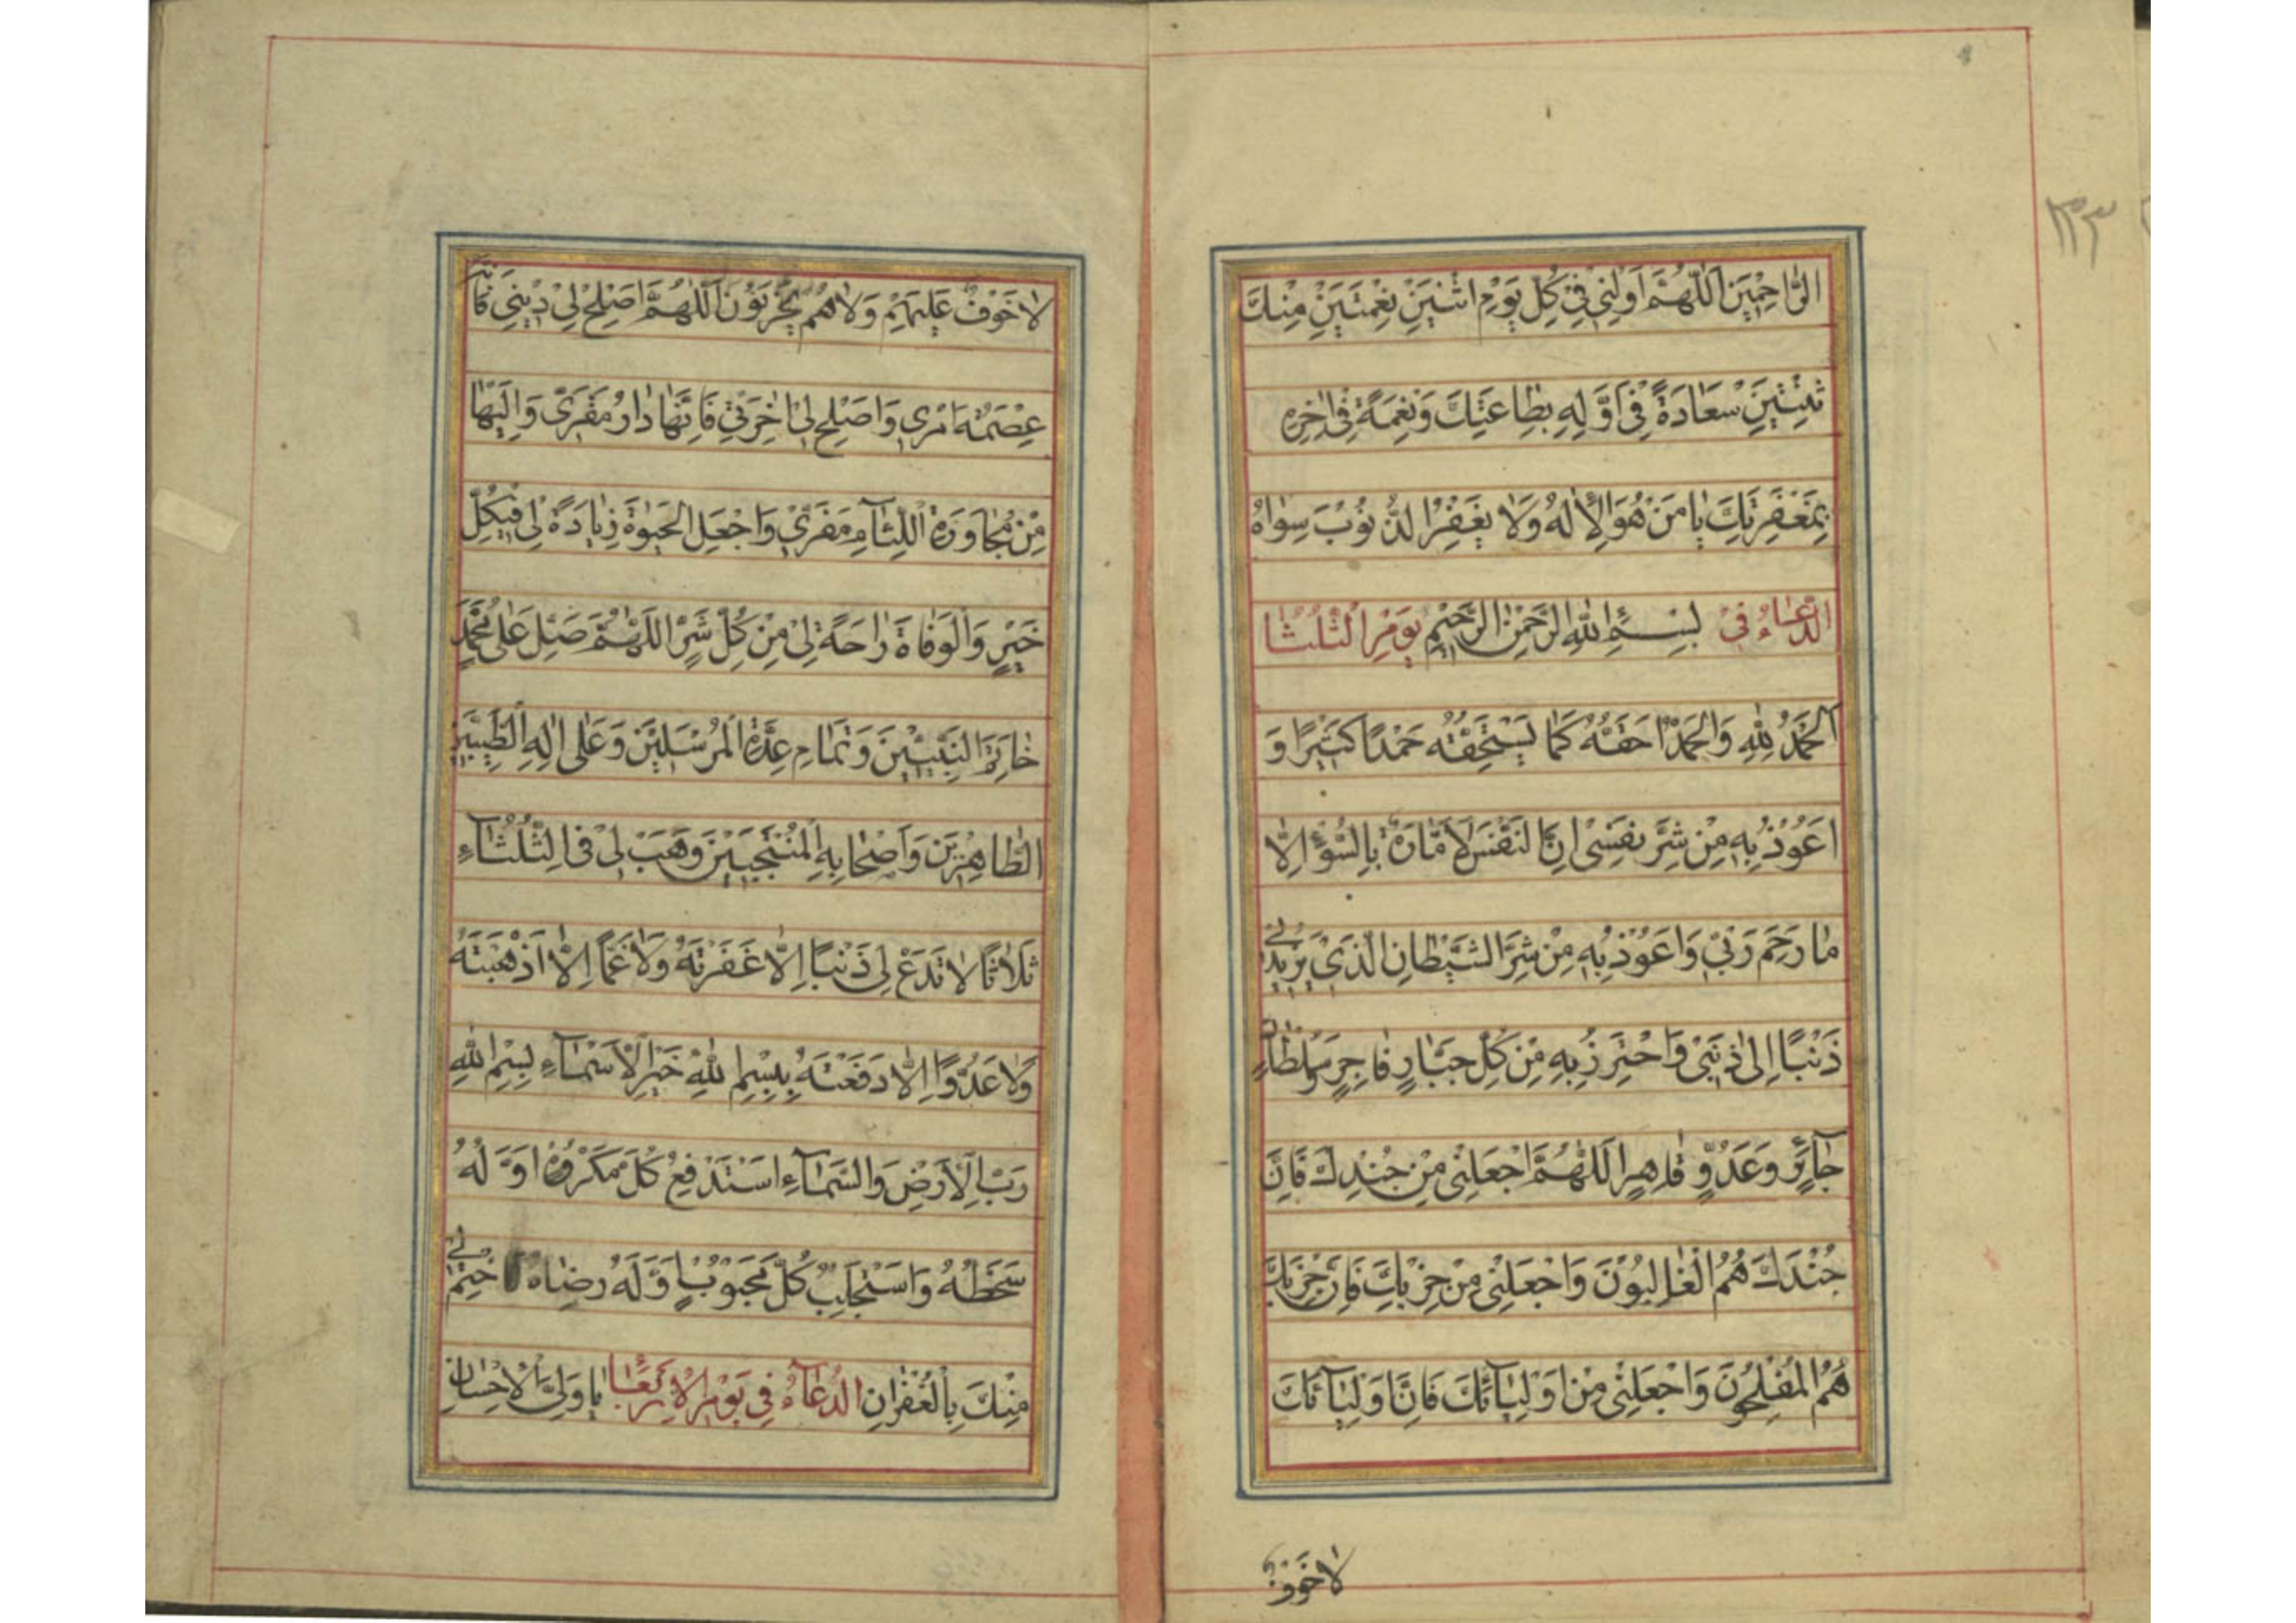 ١٣٣
الرّٰاحِمْيَن اَللّٰهُمَّ اَوْلِنِي فِي كُلِّ يَوْمِ اثْنَيْنِ نِعْمَتَيْنِ مِنْكَ
ثِنْتَيْنِ سَعَادَةً فِي اَوَّلِهِ بِطَاعَتِكَ وَنِعْمَةً فِي اٰخِرِهِ
بِمَغْفِرَتِكَ يٰا مَنْ هُوَ الْاِلٰهُ وَلٰا يَغْفِرُ الذُّنُوبَ سِوٰاهُ
الدُّعٰاءُ فِي بِسْمِ اللّٰهِ الرَّحْمٰنِ الرَّحِيْمِ يَوْمِ الثُّلَثٰا
اَلْحَمْدُ لِلّٰهِ وَالْحَمْدُ حَقُّهُ كَمٰا يَسْتَحِقُّهُ حَمْدًا كَثِيْرًا وَ
اَعُوْذُ بِهِ مِنْ شَرِّ نَفْسِى اِنَّ النَّفْسَ لَاَمّٰارَةٌ بِالسُّوْءِ اِلّٰا
مٰا رَحِمَ رَبِّيْ وَاَعُوْذُ بِهِ مِنْ شَرِّ الشَّيْطَانِ الَّذِيْ يَزِيْدُنِي
ذَنْبًا اِلٰى ذَنْبِىْ وَاَحْتَرِزُ بِهِ مِنْ كُلِّ جَبّٰارٍ فٰاجِرٍ وَسُلْطٰانٍ
جٰآئِرٍ وَعَدُوٍّ قٰاهِرٍ اَللّٰهُمَّ اجْعَلْنِىْ مِنْ جُنْدِكَ فَاِنَّ
جُنْدَكَ هُمُ الْغٰالِبُوْنَ وَاجْعَلْنِىْ مِنْ حِزْبِكَ فَاِنَّ حِزْبَكَ
هُمُ الْمُفْلِحُوْنَ وَاجْعَلْنِىْ مِنْ اَوْلِيٰآئِكَ فَاِنَّ اَوْلِيٰآئَكَ
لٰا خَوْفٌ
لٰا خَوْفٌ عَلَيْهِمْ وَلٰا هُمْ يَحْزَنُوْنَ اَللّٰهُمَّ اَصْلِحْ لِيْ دِيْنِي فَاِنَّهُ
عِصْمَةُ اَمْرِي وَاَصْلِحْ لِيْ اٰخِرَتِي فَاِنَّهٰا دٰارُ مَقَرِّي وَاِلَيْهٰا
مِنْ مُجٰاوَرَةِ اللِّئٰآمِ مَفَرِّيْ وَاجْعَلِ الْحَيٰوةَ زِيٰادَةً لِىْ فِيْ كُلِّ
خَيْرٍ وَالْوَفٰاةَ رٰاحَةً لِىْ مِنْ كُلِّ شَرٍّ اَللّٰهُمَّ صَلِّ عَلٰى مُحَمَّدٍ
خٰاتَمِ النَّبِيّٖيْنَ وَتَمٰامِ عِدَّةِ الْمُرْسَلِيْنَ وَعَلٰى اٰلِهِ الطَّيِّبِيْنَ
الطّٰاهِرِيْنَ وَاَصْحٰابِهِ الْمُنْتَجَبِيْنَ وَهَبْ لِىْ فِى الثُّلَثٰآءِ
ثَلَاثًا لَا تَدَعْ لِى ذَنْبًا اِلّٰا غَفَرْتَهُ وَلٰا غَمًّا اِلّٰا اَذْهَبْتَهُ
وَلٰا عَدُوًّا اِلّٰا دَفَعْتَهُ بِبِسْمِ اللّٰهِ خَيْرِ الْاَسْمٰآءِ بِسْمِ اللّٰهِ
رَبِّ الْاَرْضِ وَالسَّمٰآءِ اَسْتَدْفِعُ كُلَّ مَكْرُوْهٍ اَوَّلُهُ
سَخَطُهُ وَاَسْتَجْلِبُ كُلَّ مَحْبُوْبٍ اَوَّلُهُ رِضٰاهُ فَاخْتِمْ لِي
مِنْكَ بِالْغُفْرٰانِ الدُّعٰآءُ فِي يَوْمِ الْاَرْبَعٰا يٰا وَلِىَّ الْاِحْسٰانِ